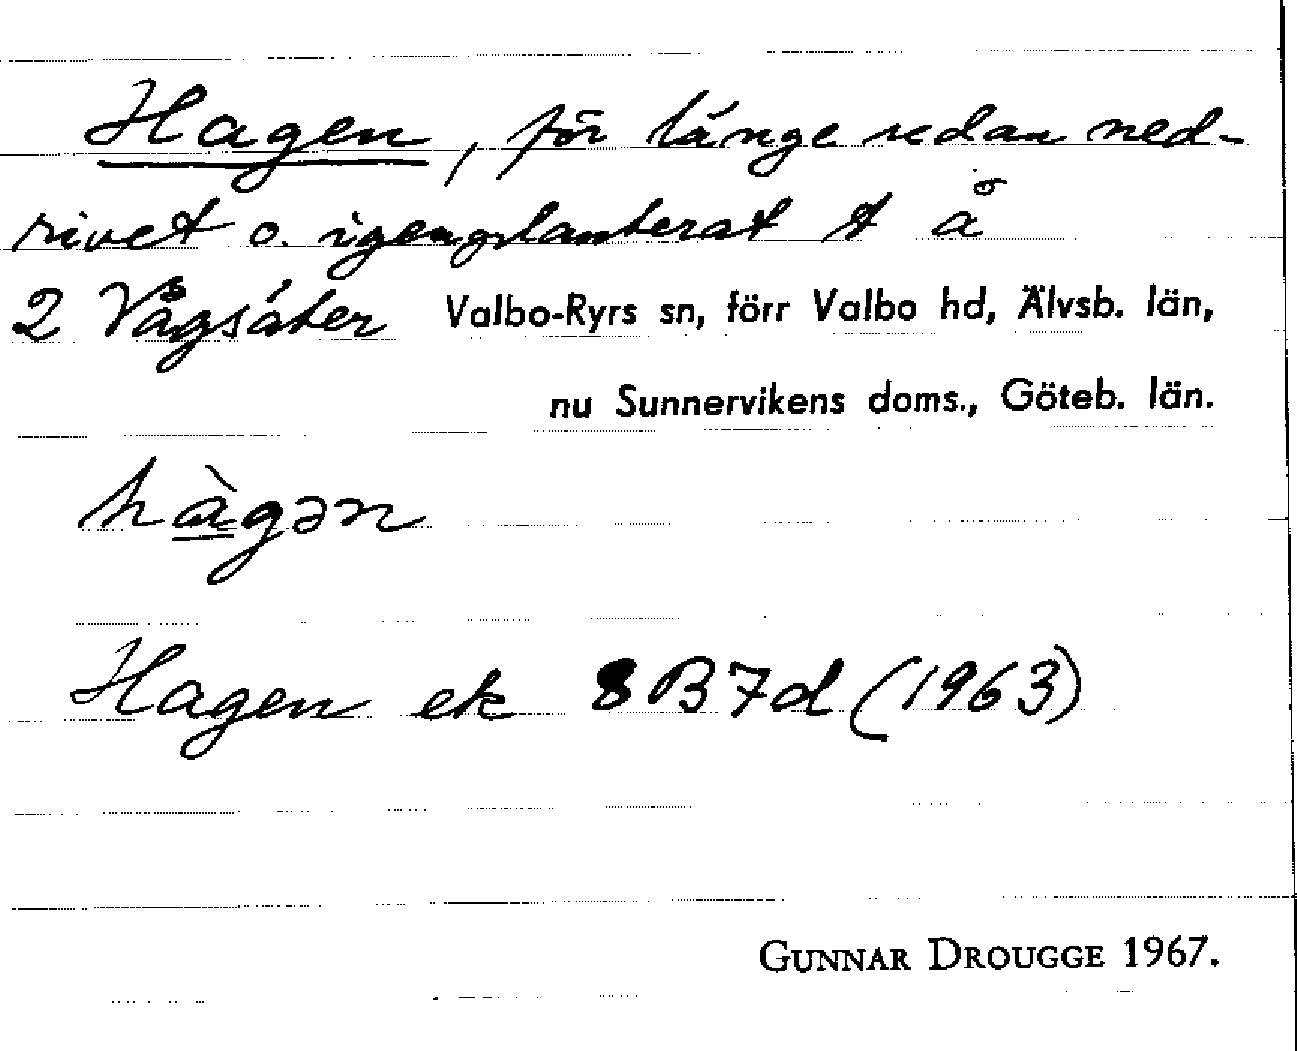 Hagen, för länge sedan ned-
rivet o. igenplanterat t å
2 Vågsäter Valbo-Ryrs sn, förr Valbo hd, Älvsb. län,
nu Sunnervikens doms., Göteb. län.
hàgən
Hagen ek 8B7d (1963)
GUNNAR DROUGGE 1967.